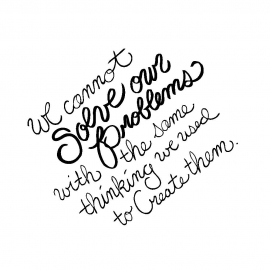 We cannot
Solve our
Problems
with the same
thinking we used
to Create them.